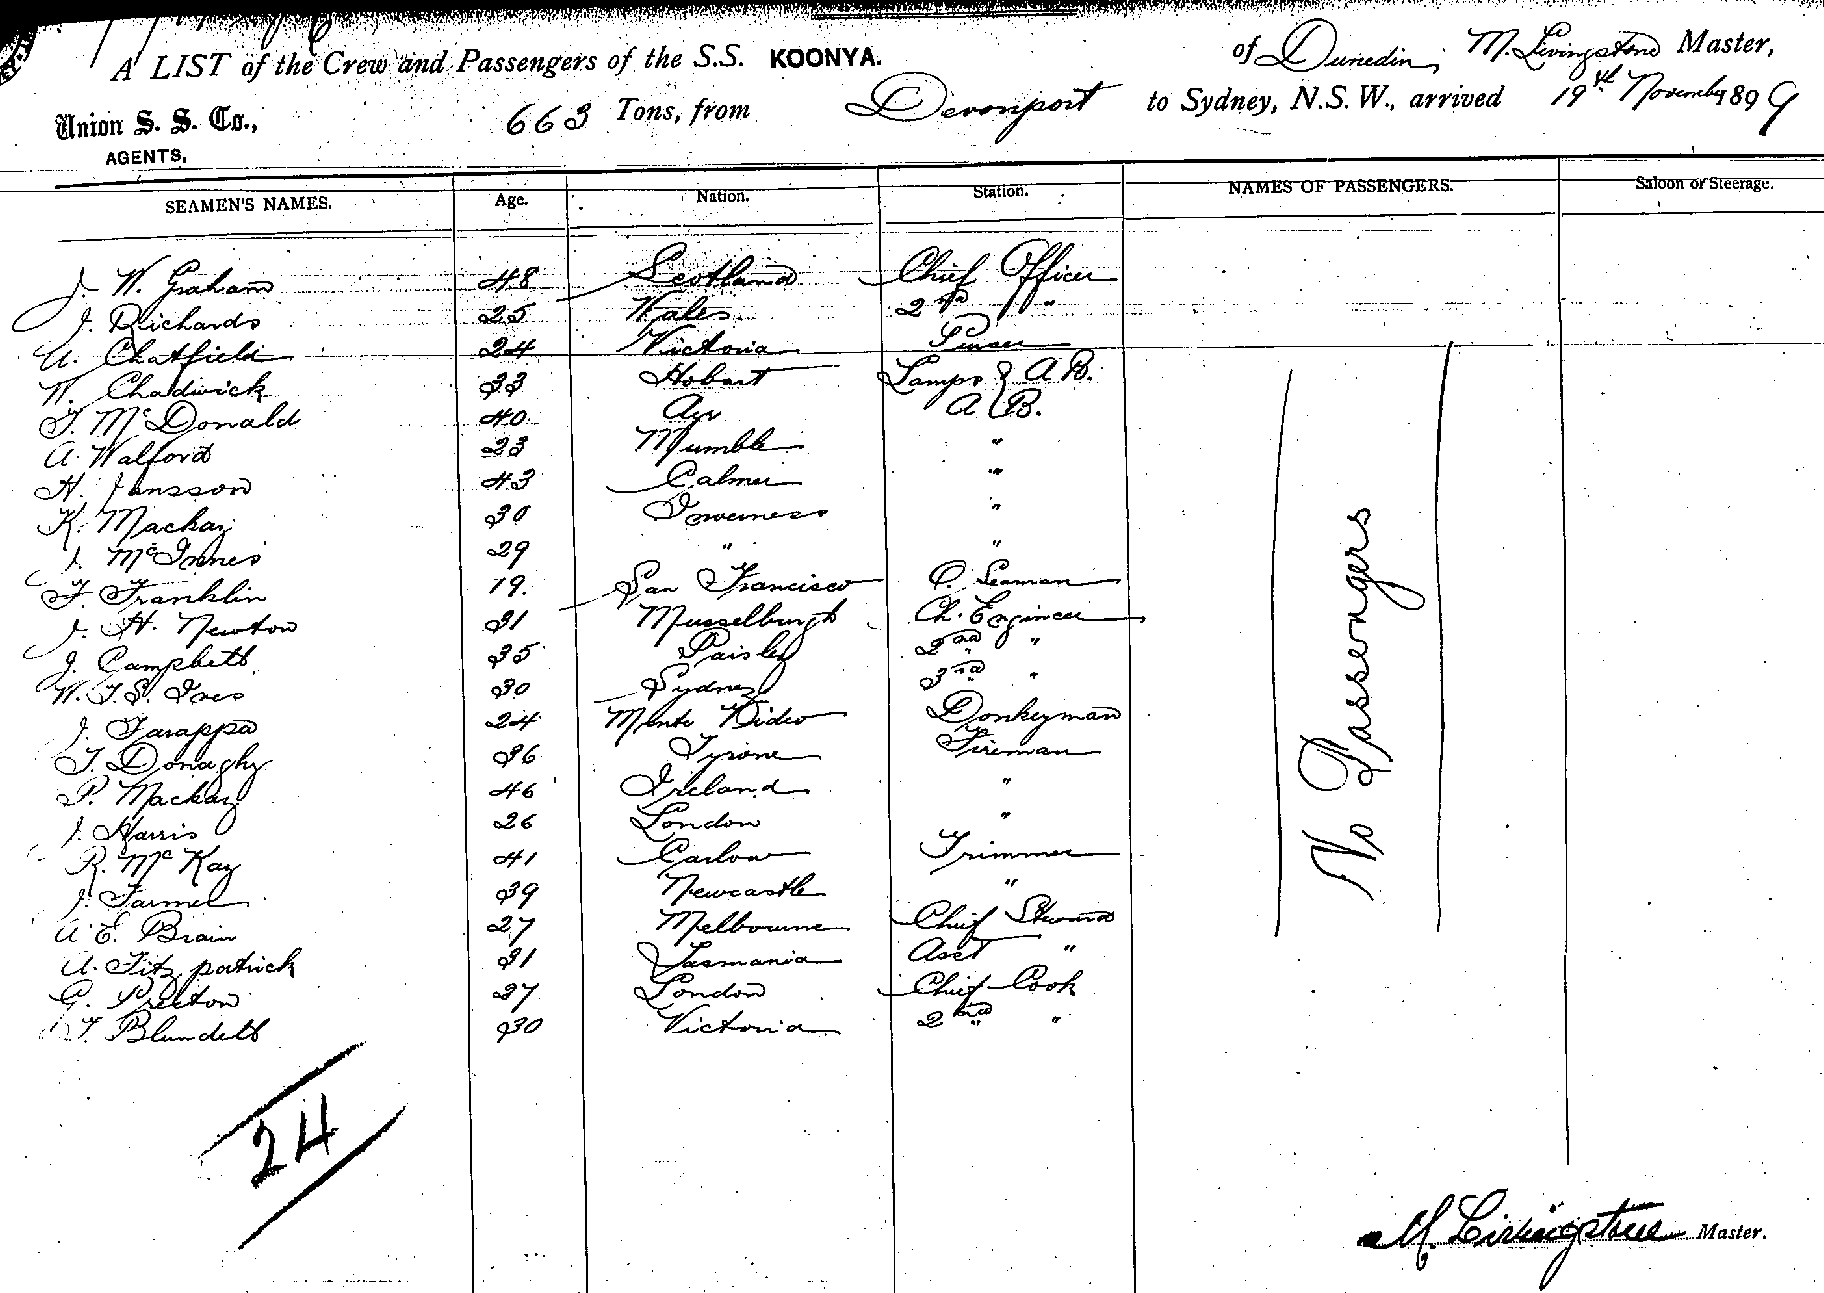 A LIST of the Crew and Passengers of the S.S. KOONYA. of Dunedin, M. Livingstone Master,
Union S. S. Co., 663 Tons, from Devonport to Sydney, N.S.W., arrived 19th November 1899
AGENTS,
SEAMEN'S NAMES. Age. Nation. Station. NAMES OF PASSENGERS. Saloon or Steerage.
J. W. Graham 48 Scotland Chief Officer
J. Richards 25 Wales 2nd "
A. Chatfield 24 Victoria Purser
W. Chadwick 33 Hobart Lamps & A B.
T. McDonald 40 Ayr A B.
A. Walford 23 Mumble "
H. Jansson 43 Calmer "
K. Mackay 30 Inverness "
J. McInnes 29 " "
F. Franklin 19. San Francisco O. Seaman
J. H. Newton 31 Musselburgh Ch. Engineer
J. Campbell 35 Paisley 2nd "
W. T. S. Ives 30 Sydney 3rd "
J. Tarappa 24 Monte Video Donkeyman
T. Donaghy 36 Tyrone Fireman
P. Mackay 46 Ireland "
J. Harris 26 London "
R. McKay 41 Carlow Trimmer
J. Farmer 39 Newcastle "
A. E. Brain 27 Melbourne Chief Steward
A. Fitzpatrick 31 Tasmania Asst "
G. Preston 27 London Chief Cook
T. Blundell 30 Victoria 2nd "
No Passengers
24
M. Livingstone Master.